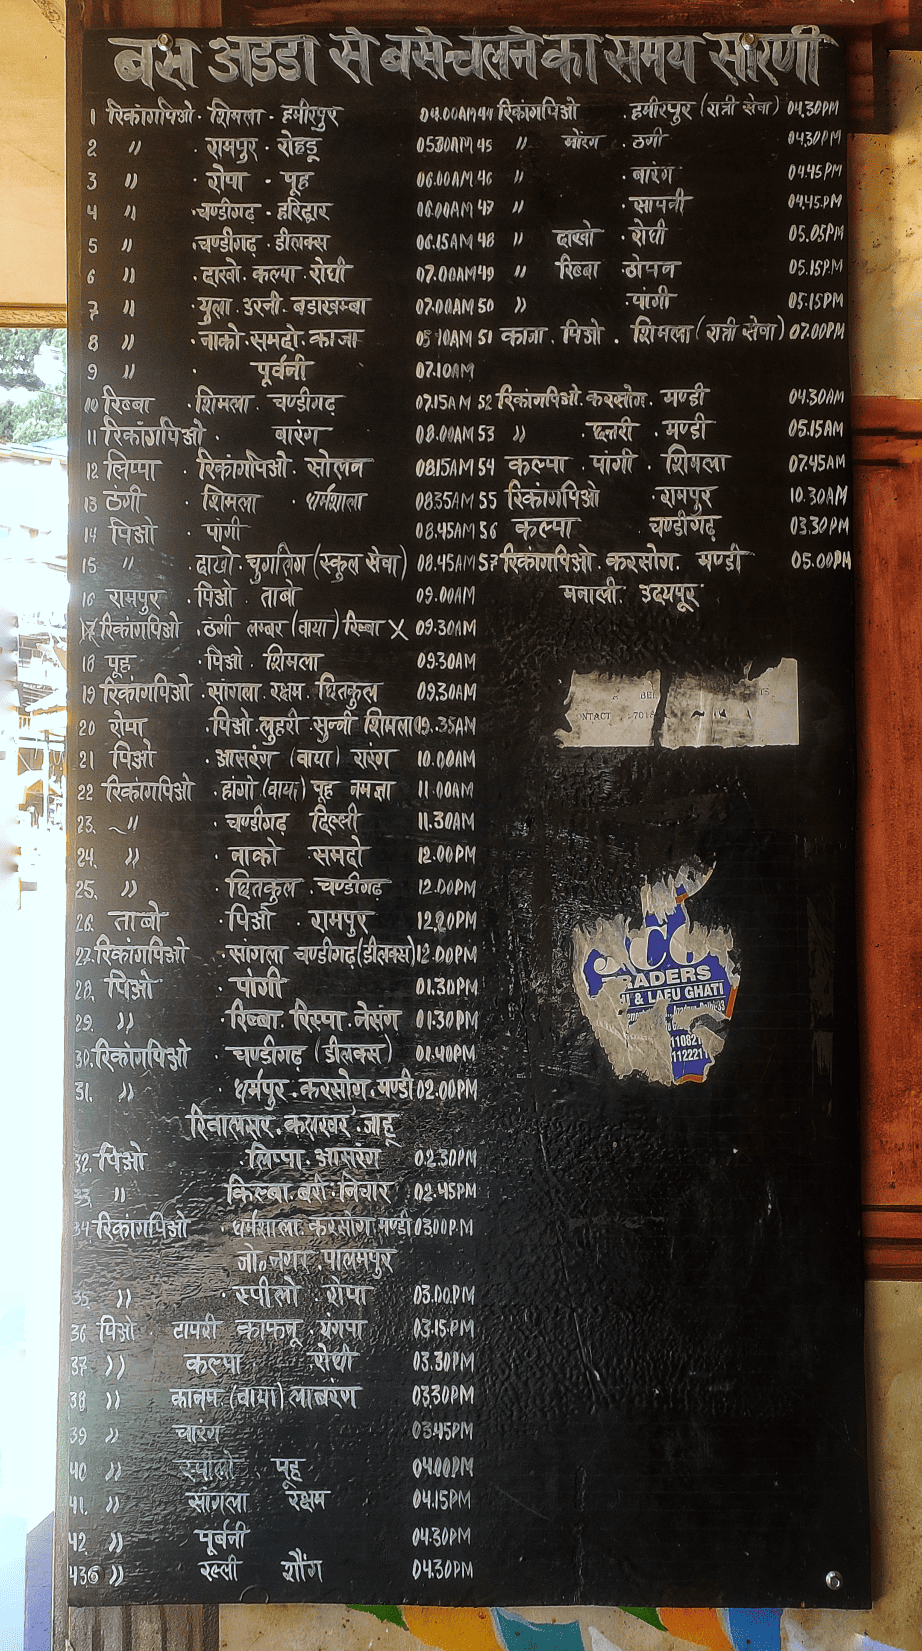 बस अडडा से बसे चलने का समय सारणी
1 रिकांगपिओ · शिमला · हमीरपुर 04.00AM
2 " · रामपुर · रोहडू 05.30AM
3 " · रोपा · पूह 06.00AM
4 " · चण्डीगढ़ · हरिद्वार 06.00AM
5 " · चण्डीगढ़ · डीलक्स 06.15AM
6 " · दाखो · कल्पा · रोघी 07.00AM
7 " · युला · उरनी · बडाखम्बा 07.00AM
8 " · नाको · समदो · काजा
9 " · पूर्वनी 07.10AM
10 रिब्बा · शिमला · चण्डीगढ़ 07.15AM
11 रिकांगपिओ · बारंग 08.00AM
12 लिप्पा · रिकांगपिओ · सोलन 08.15AM
13 ठंगी · शिमला · धर्मशाला 08.35AM
14 पिओ · पांगी 08.45AM
15 " · दाखो · चुगलिंग (स्कुल सेवा) 08.45AM
16 रामपुर · पिओ · ताबो 09.00AM
17 रिकांगपिओ · ठंगी लम्बर (वाया) रिब्बा X 09.30AM
18 पूह · पिओ · शिमला 09.30AM
19 रिकांगपिओ · सांगला · रक्षम · छितकुल 09.30AM
20 रोपा · पिओ · लुहरी · सुन्नी · शिमला 09.35AM
21 पिओ · आसरंग (वाया) रारंग 10.00AM
22 रिकांगपिओ · हांगो (वाया) पूह नमज्ञा 11.00AM
23. " · चण्डीगढ़ दिल्ली 11.30AM
24. " · नाको समदो 12.00PM
25. " · छितकुल · चण्डीगढ़ 12.00PM
26. ताबो · पिओ · रामपुर 12.20PM
27. रिकांगपिओ · सांगला चण्डीगढ़ (डीलक्स) 12.00PM
28. पिओ · पांगी 01.30PM
29. " · रिब्बा · रिस्पा · नेसंग 01.30PM
30. रिकांगपिओ · चण्डीगढ़ (डीलक्स) 01.40PM
31. " · धर्मपुर · करसोग · मण्डी 02.00PM
रिवालसर · कलखर · जाहू
32. पिओ · लिप्पा · आसरंग 02.30PM
33. " किल्बा · बरी · निचार 02.45PM
34 रिकांगपिओ · धर्मशाला · करसोग मण्डी 03.00PM
जो० नगर · पालमपुर
35 " · स्पीलो · रोपा 03.00.PM
36 पिओ · टापरी काफनू · यंगपा 03.15.PM
37 " कल्पा · रोघी 03.30PM
38 " कानम (वाया) लाबरंग 03.30PM
39 " चारंग 03.45PM
40 " स्पीलो · पूह 04.00PM
41. " सांगला रक्षम 04.15PM
42 " पूर्बनी 04.30PM
43 " रल्ली शौंग 04.30PM
44 रिकांगपिओ · हमीरपुर (रात्री सेवा) 04.30PM
45 " मोरंग · ठंगी 04.30PM
46 " · बारंग 04.45PM
47 " · सापनी 04.45.PM
48 " दाखो · रोघी 05.05PM
49 " रिब्बा · ठोपन 05.15P.M
50 " · पांगी 05.15PM
51 काजा · पिओ · शिमला (रात्री सेवा) 07.00PM
52 रिकांगपिओ · करसोग · मण्डी 04.30AM
53 " · छतरी · मण्डी 05.15AM
54 कल्पा · पांगी · शिमला 07.45AM
55 रिकांगपिओ · रामपुर 10.30AM
56 कल्पा · चण्डीगढ़ 03.30PM
57 रिकांगपिओ · करसोग · मण्डी 05.00PM
मनाली · उदयपूर
RADERS
& LAFU GHATI